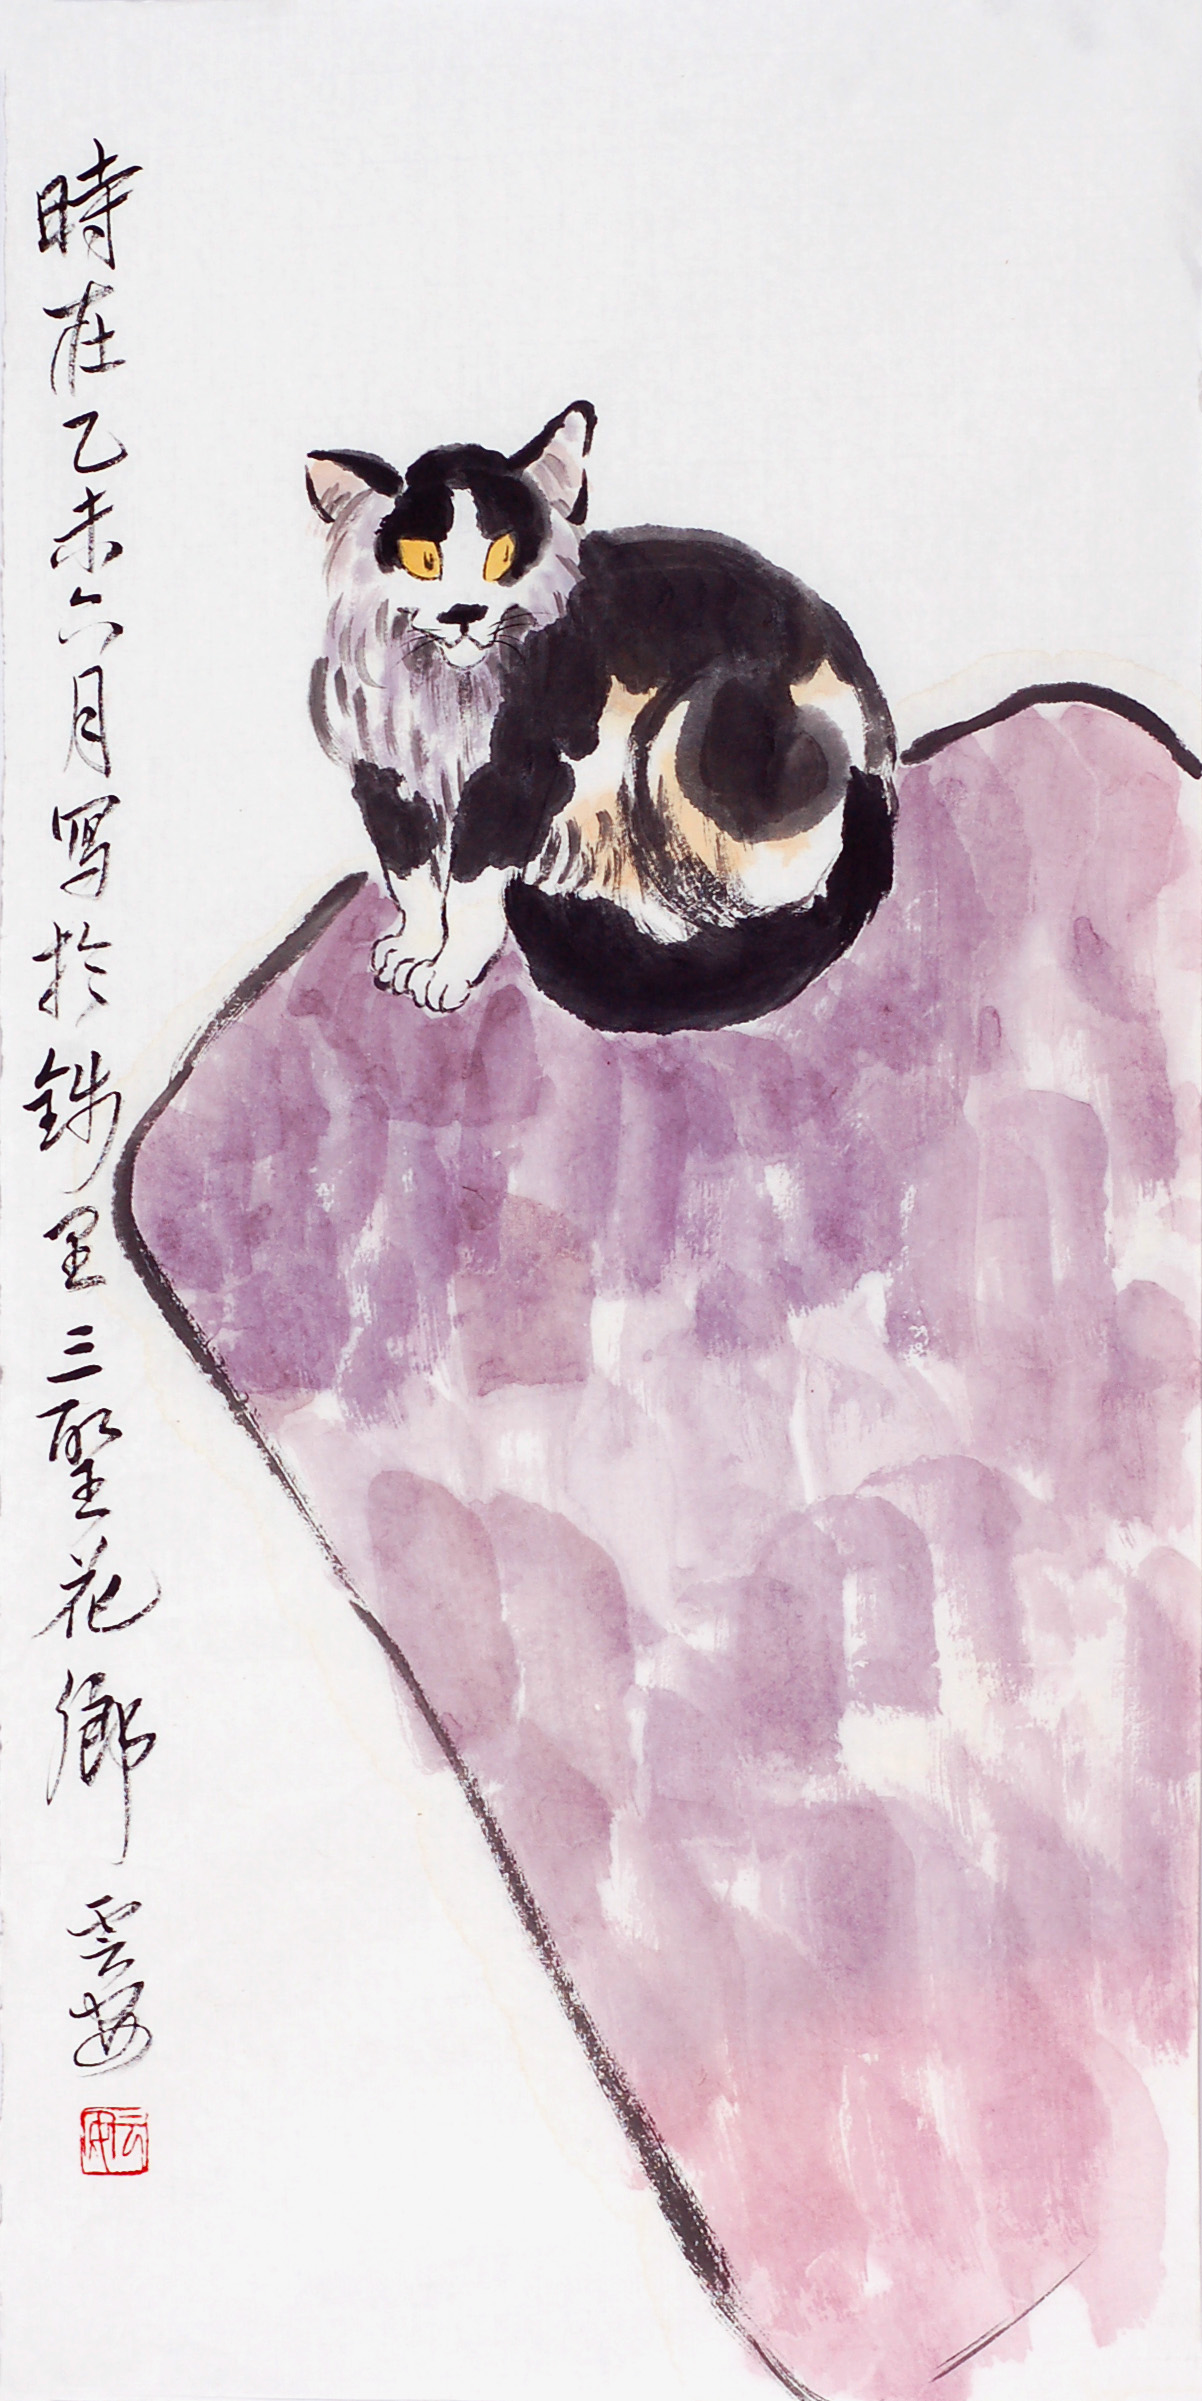 時在乙未六月寫於錢里三聖花鄉 雲安
云安